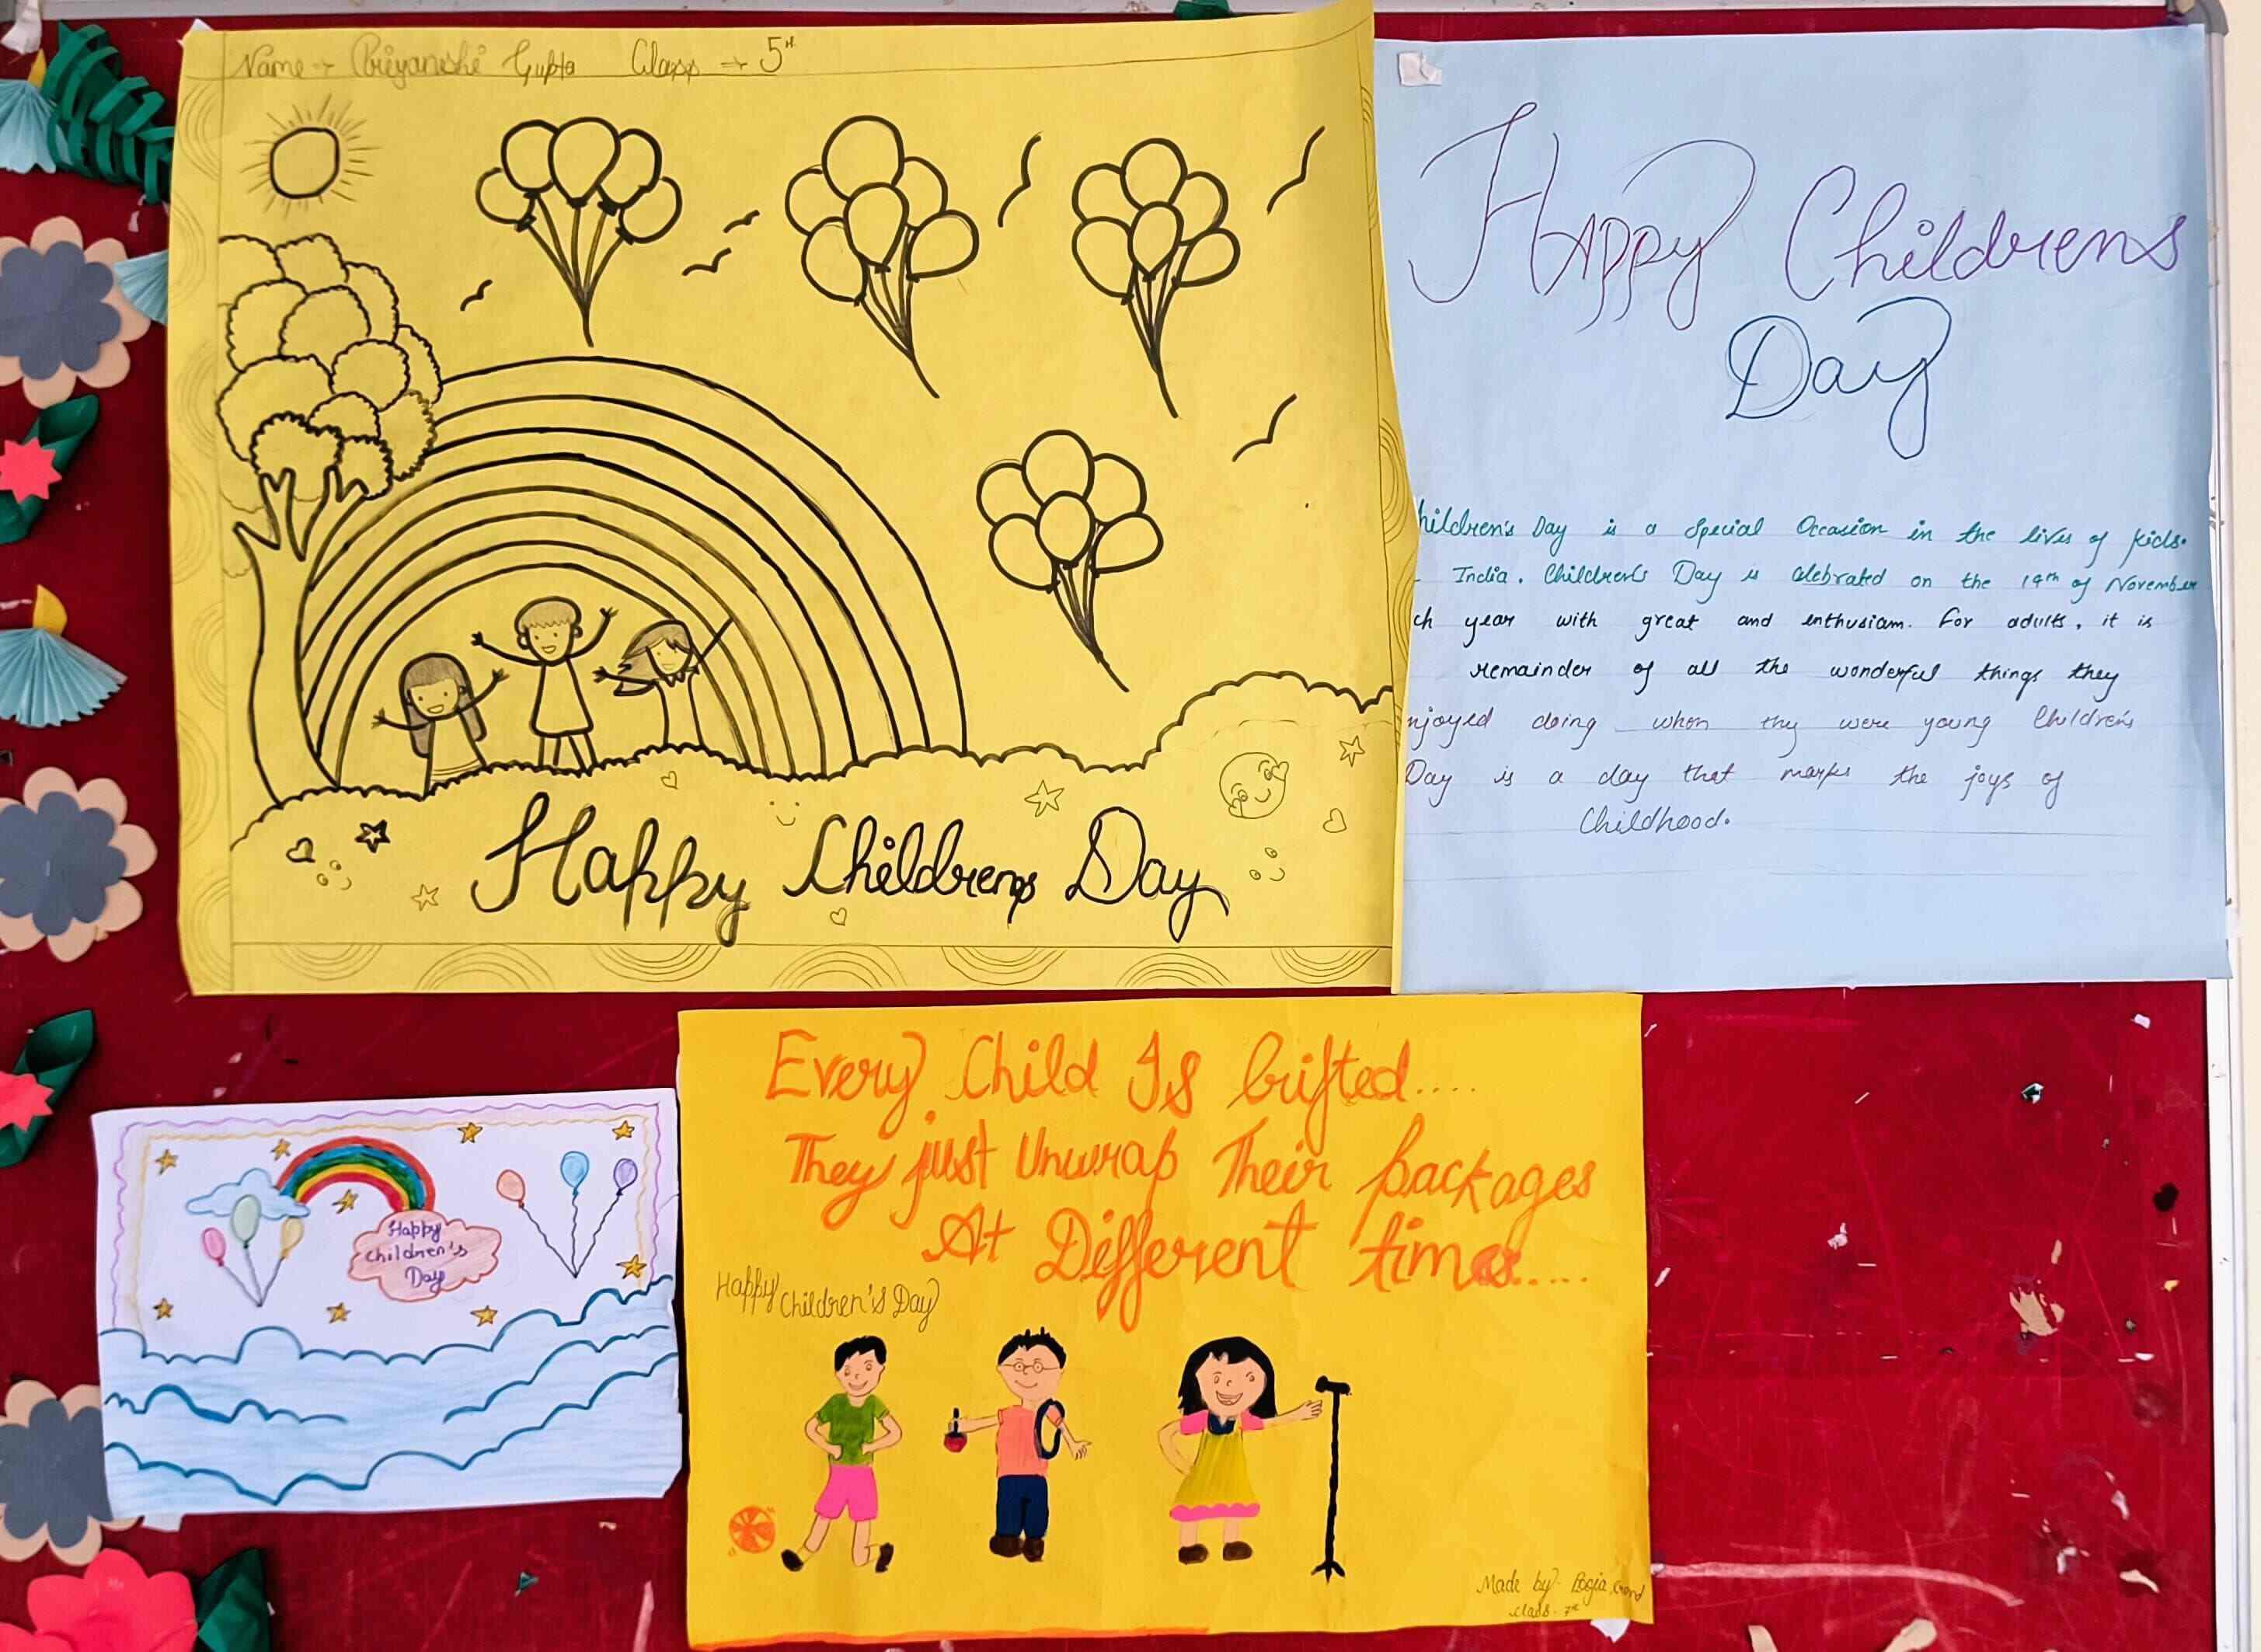 Name → Priyanshi Gupta Class → 5th
Happy Childrens Day
Happy Childrens
Day
hildren's Day is a Special Occasion in the lives of kids.
India. Children's Day is Celebrated on the 14th of November
ch year with great and enthusiam. For adults, it is
remainder of all the wonderful things they
njoyed doing when thy were young Children's
Day is a day that marks the joys of
Childhood.
Happy
Children's
Day
Every Child Is Gifted....
They just Unwrap Their packages
At Different times.....
Happy Children's Day
Made by- Pooja Gond
class- 7th